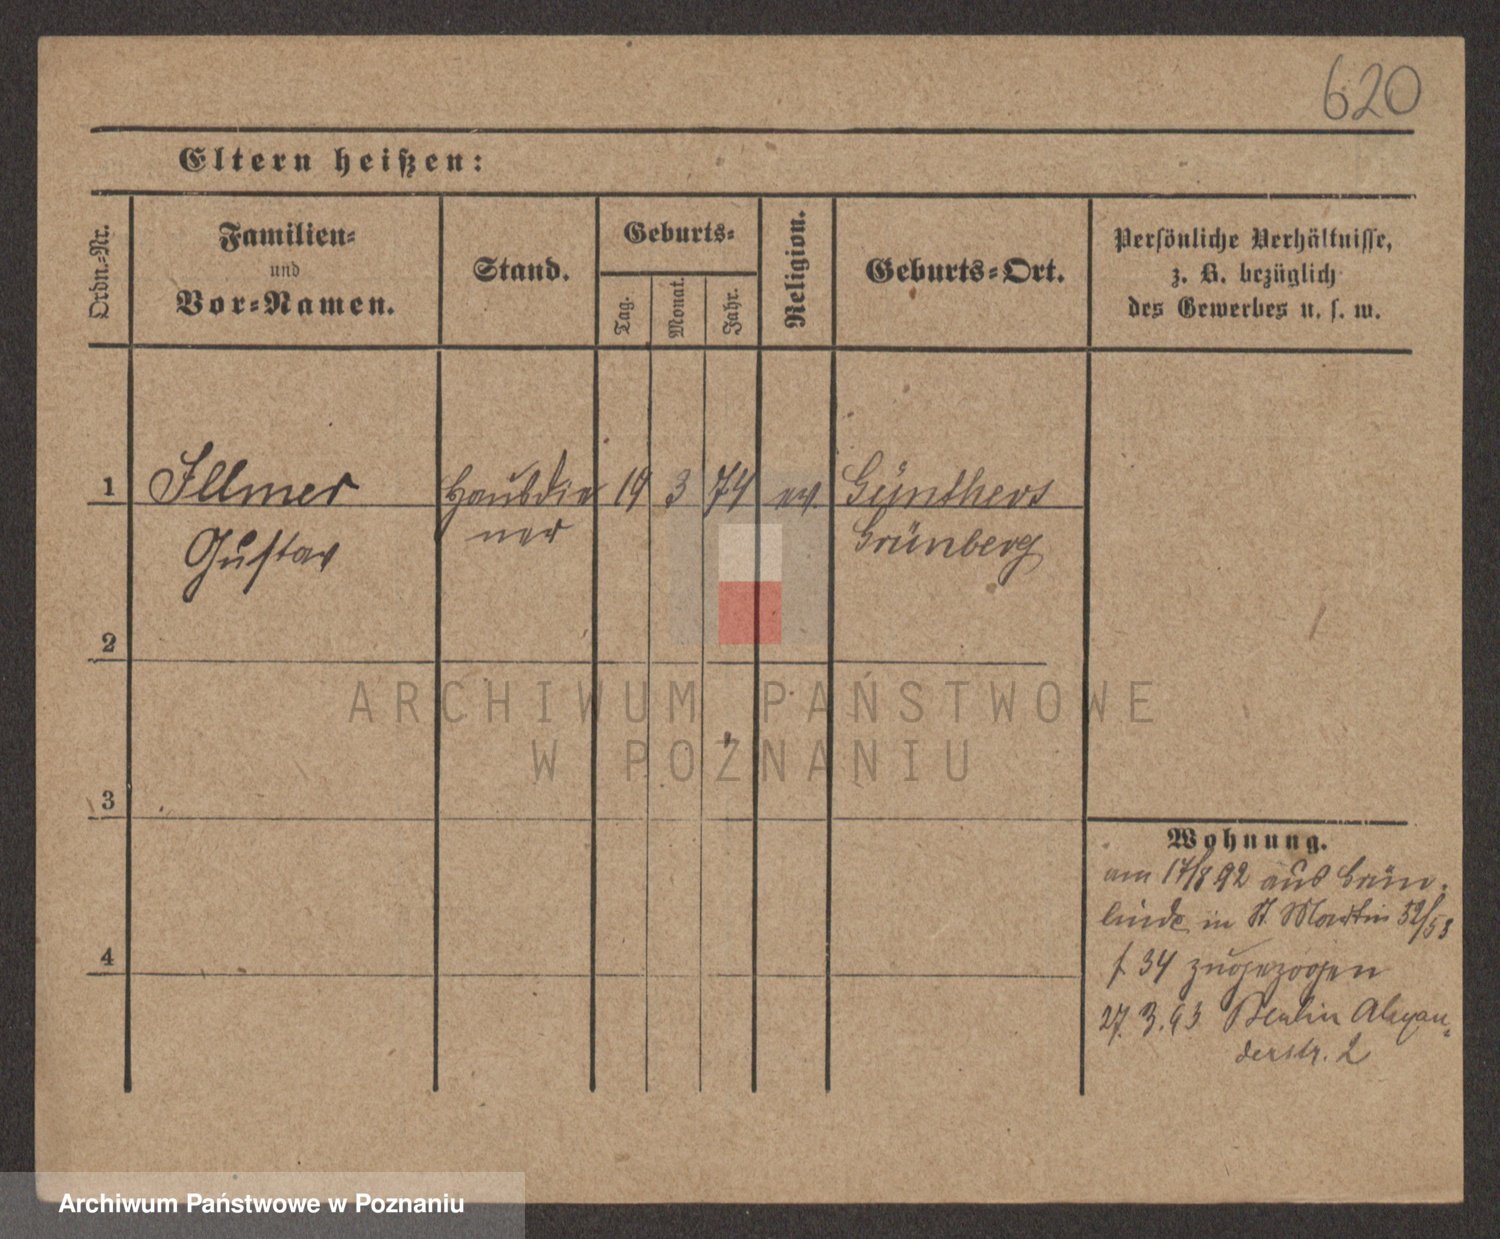 620
Eltern heißen:
Ordn.-Nr.
Familien-
und
Vor-Namen.
Stand.
Geburts-
Tag.
Monat.
Jahr.
Religion.
Geburts-Ort.
Persönliche Verhältnisse,
z. B. bezüglich
des Gewerbes u. s. w.
1 Illmer Hausdie 19 3 74 ev. Günthers
Gustav ner Grünberg
2
3
4
ARCHIWUM PAŃSTWOWE
W POZNANIU
Wohnung.
am 17/8 92 aus Grün-
linde in St Martin 52/53
f. 34 zugezogen
27. 3. 93 Berlin Alexan-
derstr. 2
Archiwum Państwowe w Poznaniu